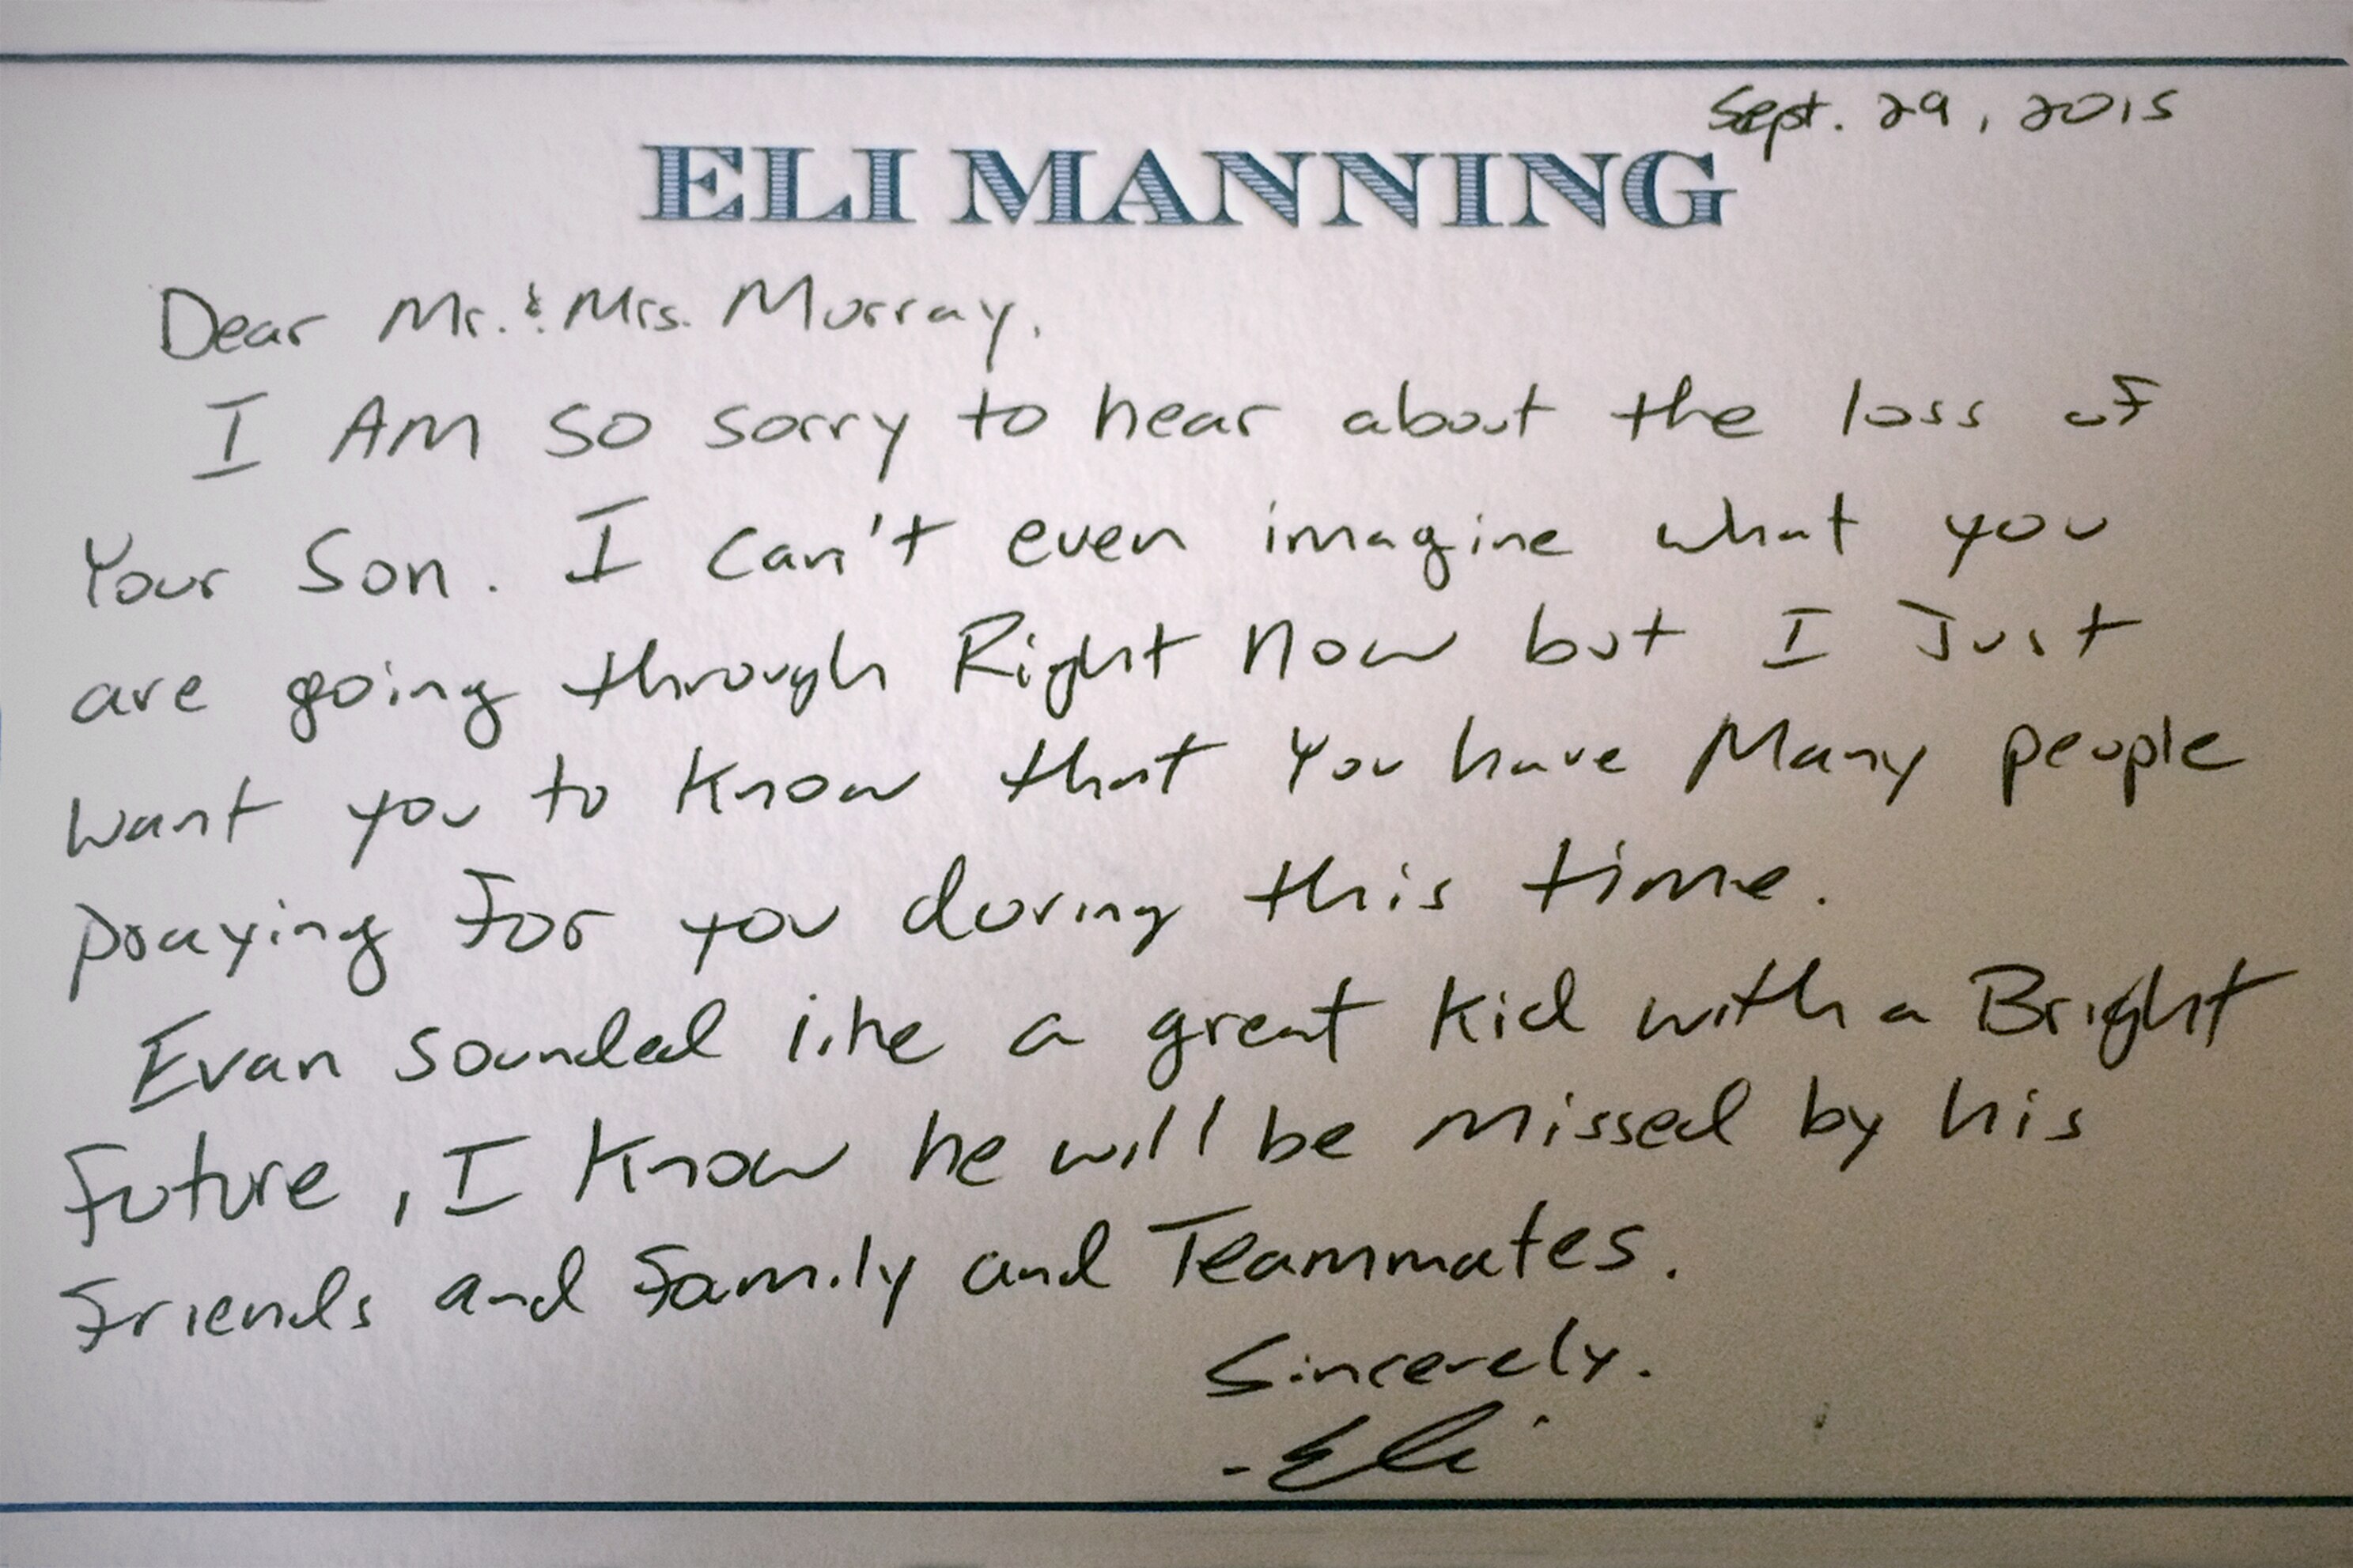 Sept. 29, 2015
ELI MANNING
Dear Mr. & Mrs. Murray,
I AM so sorry to hear about the loss of
Your Son. I can't even imagine what you
are going through Right now but I Just
want you to know that You have Many people
praying For you during this time.
Evan sounded like a great kid with a Bright
Future, I know he will be missed by his
Friends and Family and Teammates.
Sincerely.
-Eli